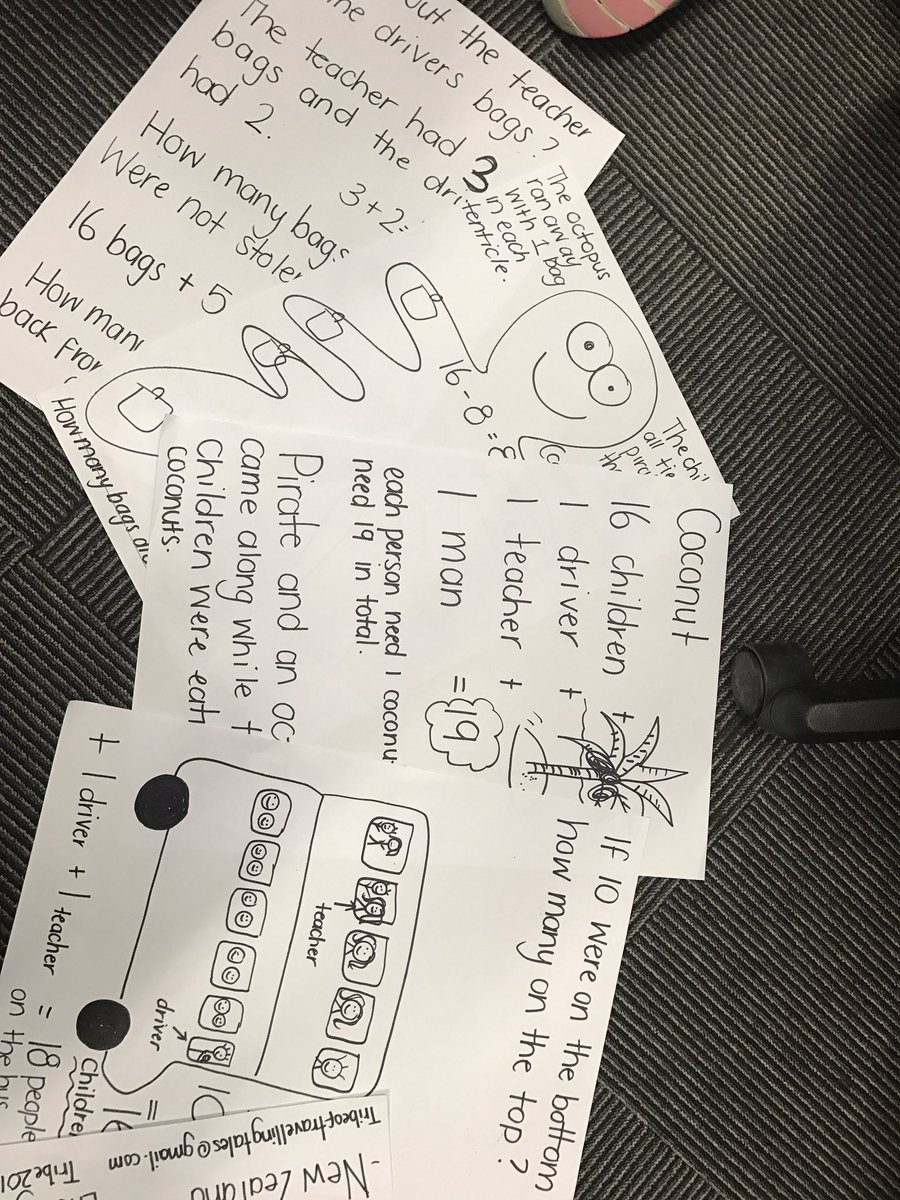 out the teacher
the drivers bags?
The teacher had 3
bags and the dri
had 2.
3+2=
How many bags
Were not stole
16 bags + 5
How man
back fro
How many bags
The octopus
ran away
with 1 bag
in each
tenticle.
16-8=8
The chi
all tie
pira
th
Coconut
16 children +
1 driver +
1 teacher +
1 man
=19
each person need 1 coconu
need 19 in total.
Pirate and an oc
came along while t
Children were eati
coconuts.
If 10 were on the bottom
how many on the top?
teacher
driver
10
= 16
Childre
+ 1 driver + 1 teacher = 18 people
on the bus
Tribeoftravellingtales@gmail.com
- New Zealand
Tribe201